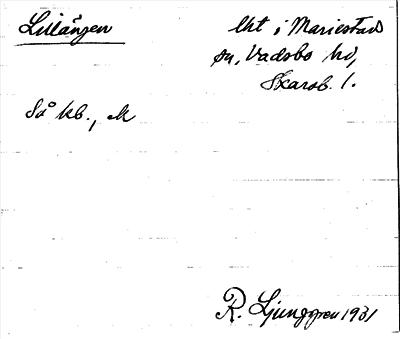 Lillängen
Uht i Mariestads
sn, Vadsbo hd,
Skarab. l.
Så kb., M
R. Ljunggren 1931